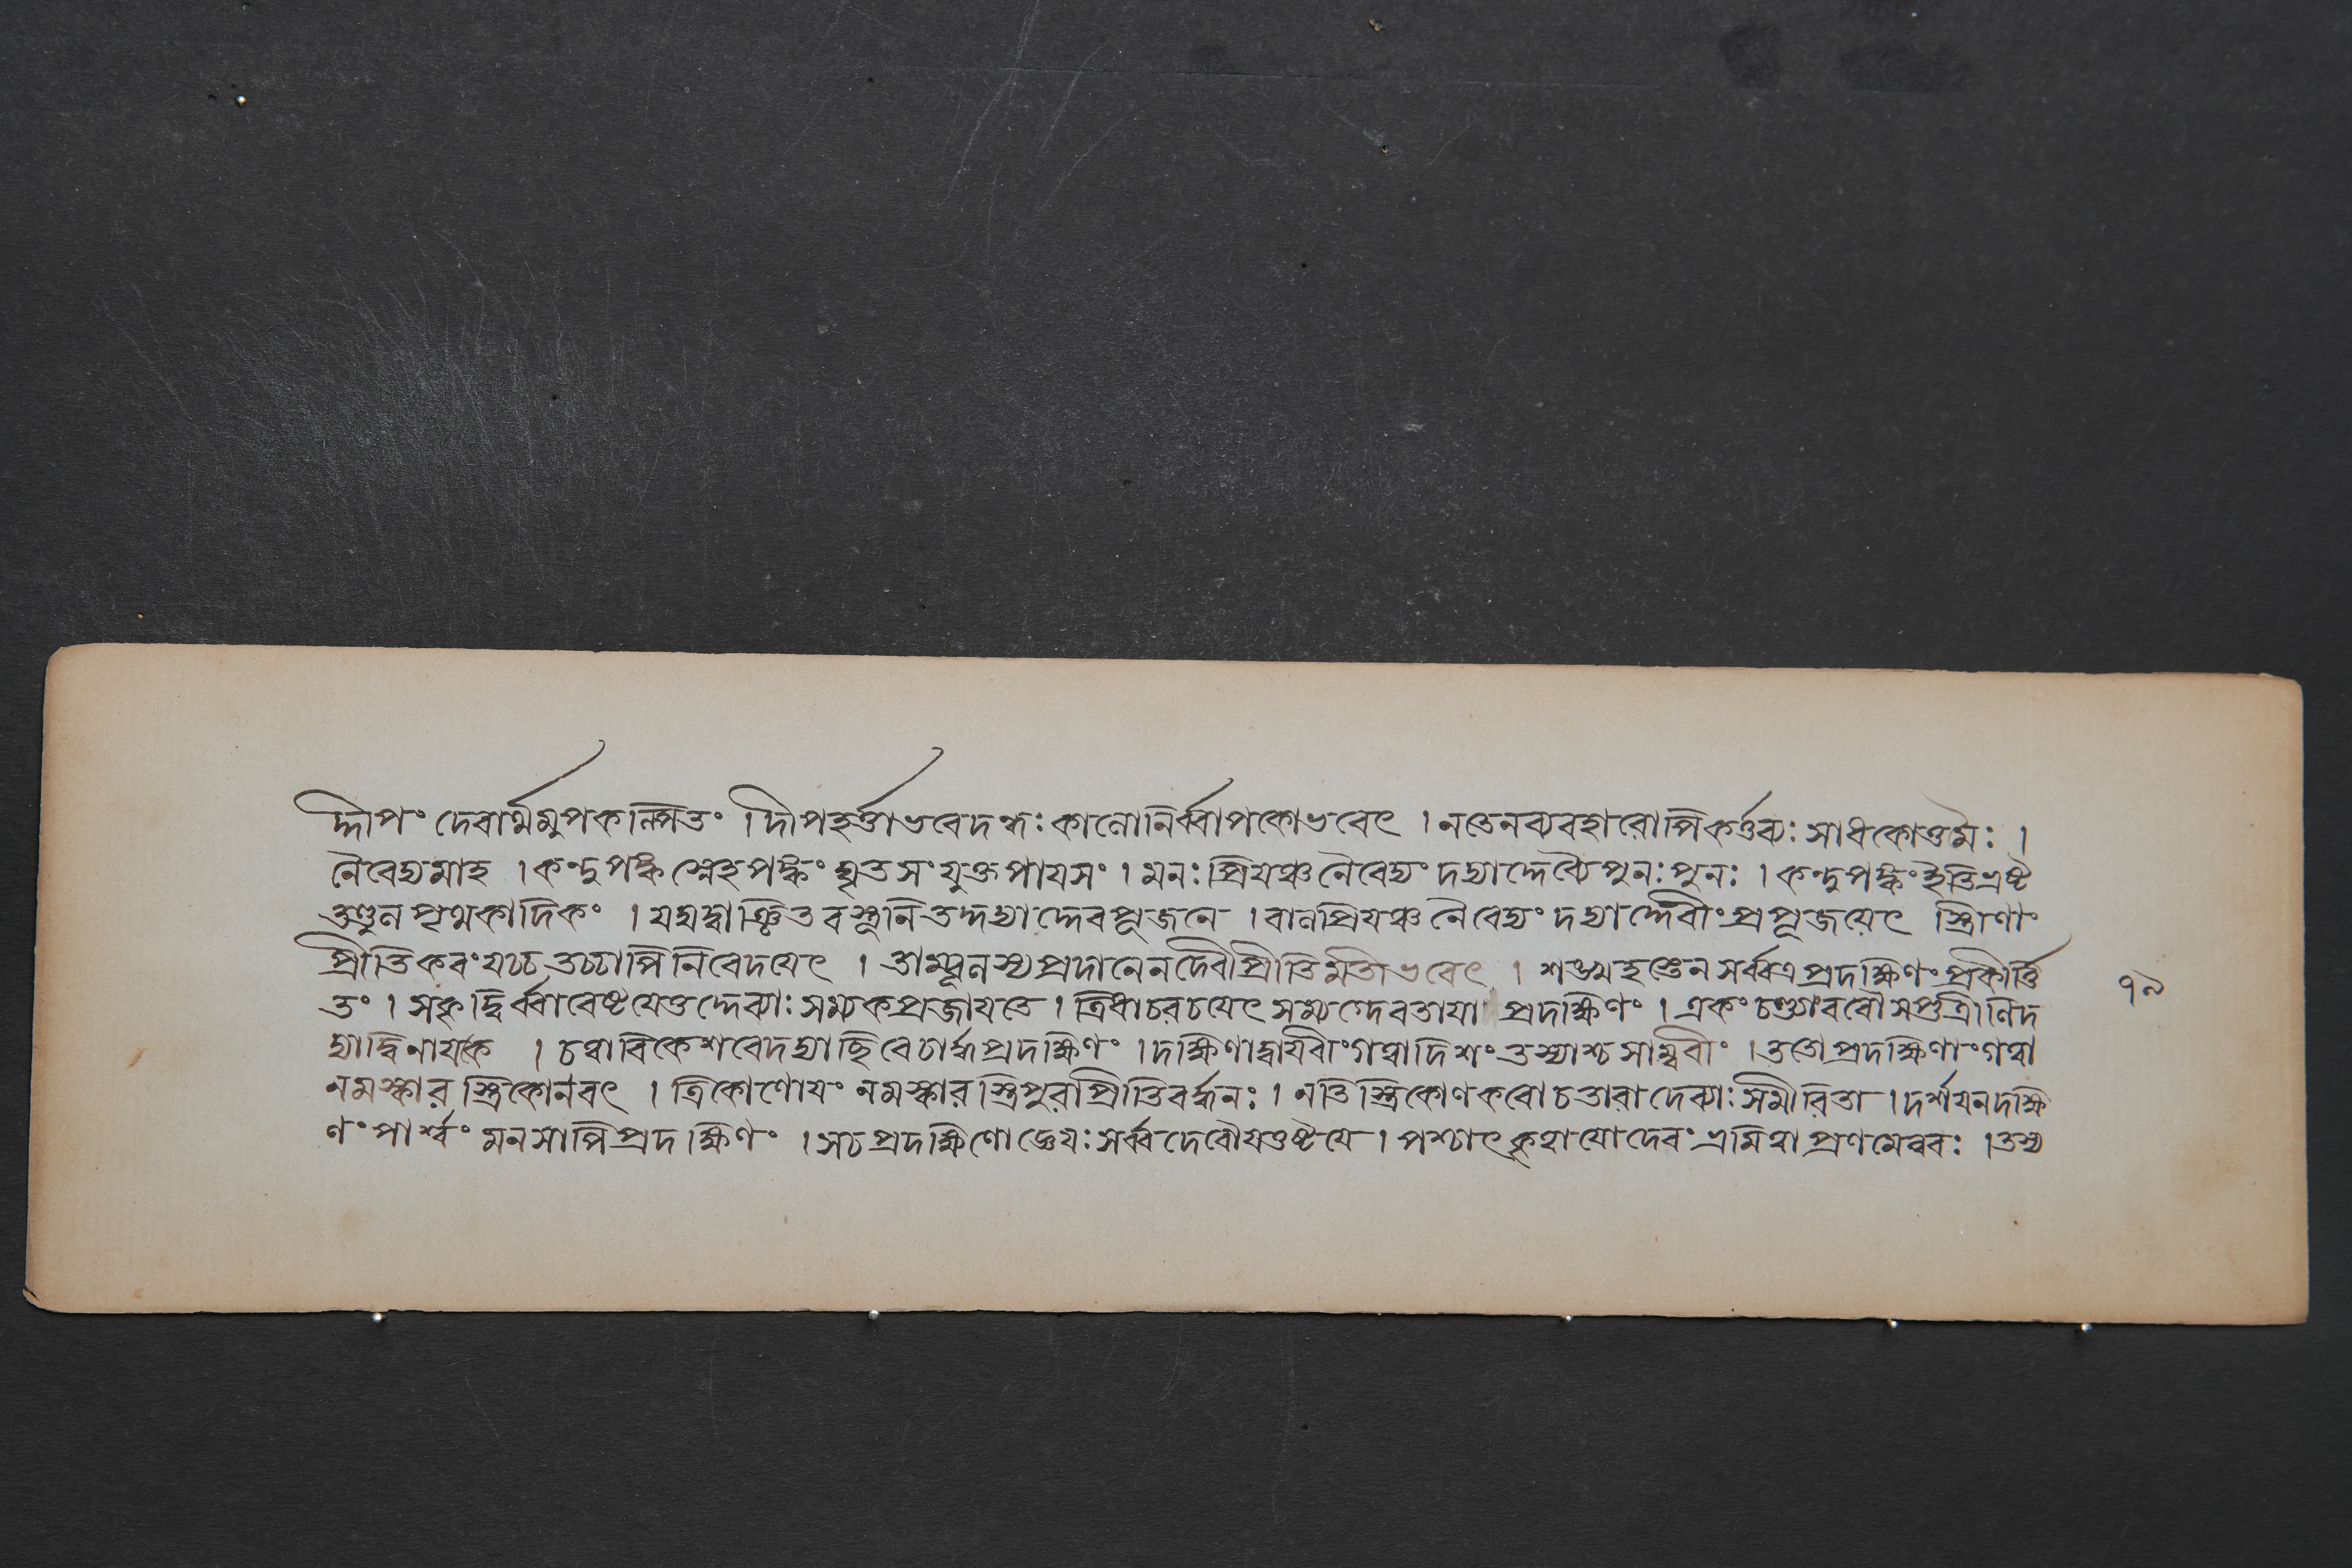 দ্দীপং দেবার্থমুপকল্পিতং । দীপহর্ত্তা ভবেদন্ধঃ কাণো নির্ব্বাপকো ভবেৎ । ন তেন ব্যবহারোপি কর্ত্তব্যঃ সাধকোত্তমৈঃ ।
নৈবেদ্যমাহ । কন্দুপক্ক স্নেহপক্কং ঘৃতসংযুক্তপায়সং । মনঃপ্রিয়ঞ্চ নৈবেদ্যং দদ্যাদ্দেব্যৈ পুনঃ পুনঃ । কন্দুপক্কং ইতি ভ্রষ্ট
তণ্ডুল পৃথুকাদিকং । যদ্যদ্বাঞ্ছিতবস্তূনি তদ্দদ্যাদ্দেবপূজনে । বালপ্রিয়ঞ্চ নৈবেদ্যং দদ্যাদ্দেবীং প্রপূজয়েৎ স্ত্রীণাং
প্রীতিকরং যচ্চ তচ্চাপি নিবেদয়েৎ । তাম্বূলস্য প্রদানেন দেবীপ্রীতিমতী ভবেৎ । শঙ্খহস্তেন সর্ব্বত্র প্রদক্ষিণং প্রকীর্ত্তি
তং । সকৃদ্ধির্ব্বা বেষ্টয়েত্তদ্দেব্যাঃ সম্যক প্রজায়তে । ত্রিধা চরচয়েৎ সম্যগ্দেবতায়া প্রদক্ষিণং । একং চণ্ড্যাং রবৌ সপ্ত ত্রীণি দ
দ্যাদ্বিনায়কে । চত্বারি কেশবে দদ্যাচ্ছিবে চার্দ্ধপ্রদক্ষিণং । দক্ষিণাদ্বায়বীং গত্বা দিশং তস্যাশ্চ সাম্ভবীং । ততো প্রদক্ষিণাং গত্বা
নমস্কার স্ত্রিকোনবৎ । ত্রিকোণোয়ং নমস্কার স্ত্রিপুরাপ্রীতিবর্দ্ধনঃ । নতি স্ত্রিকোণকবো চ তারা দেব্যাঃ সমীরিতা । দর্শয়ন দক্ষি
ণং পার্শ্বং মনসাপি প্রদক্ষিণং । স চ প্রদক্ষিণো জ্ঞেয়ঃ সর্ব্বদেবৌঘতুষ্টয়ে । পশ্চাৎ কৃত্বা যো দেবং ভ্রমিত্বা প্রণমেন্নরঃ । তস্য
১৯